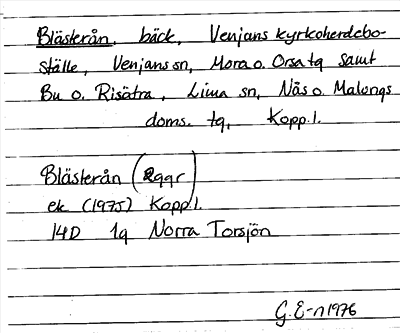 Blästerån, bäck, Venjans kyrkoherdebo-
ställe, Venjans sn, Mora o. Orsa tg samt
Bu o. Risätra, Lima sn, Näs o. Malungs
doms. tg, Kopp.l.
Blästerån (2ggr)
ek (1975) Kopp.l.
14D 1g Norra Torsjön
G.E-n 1976